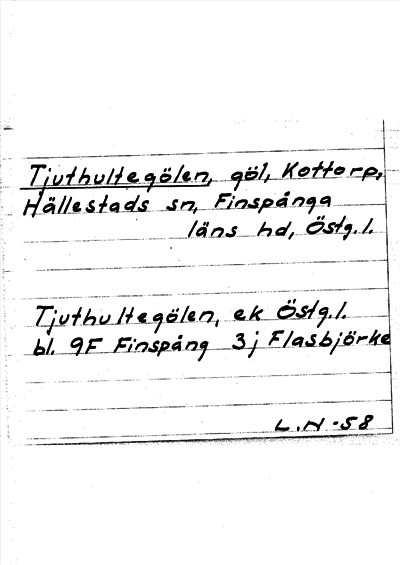 Tjuthultegölen, göl, Kottorp,
Hällestads sn, Finspånga
läns hd, Östg.l.
Tjuthultegölen, ek Östg.l.
bl. 9F Finspång 3j Flasbjörke
L.N -58